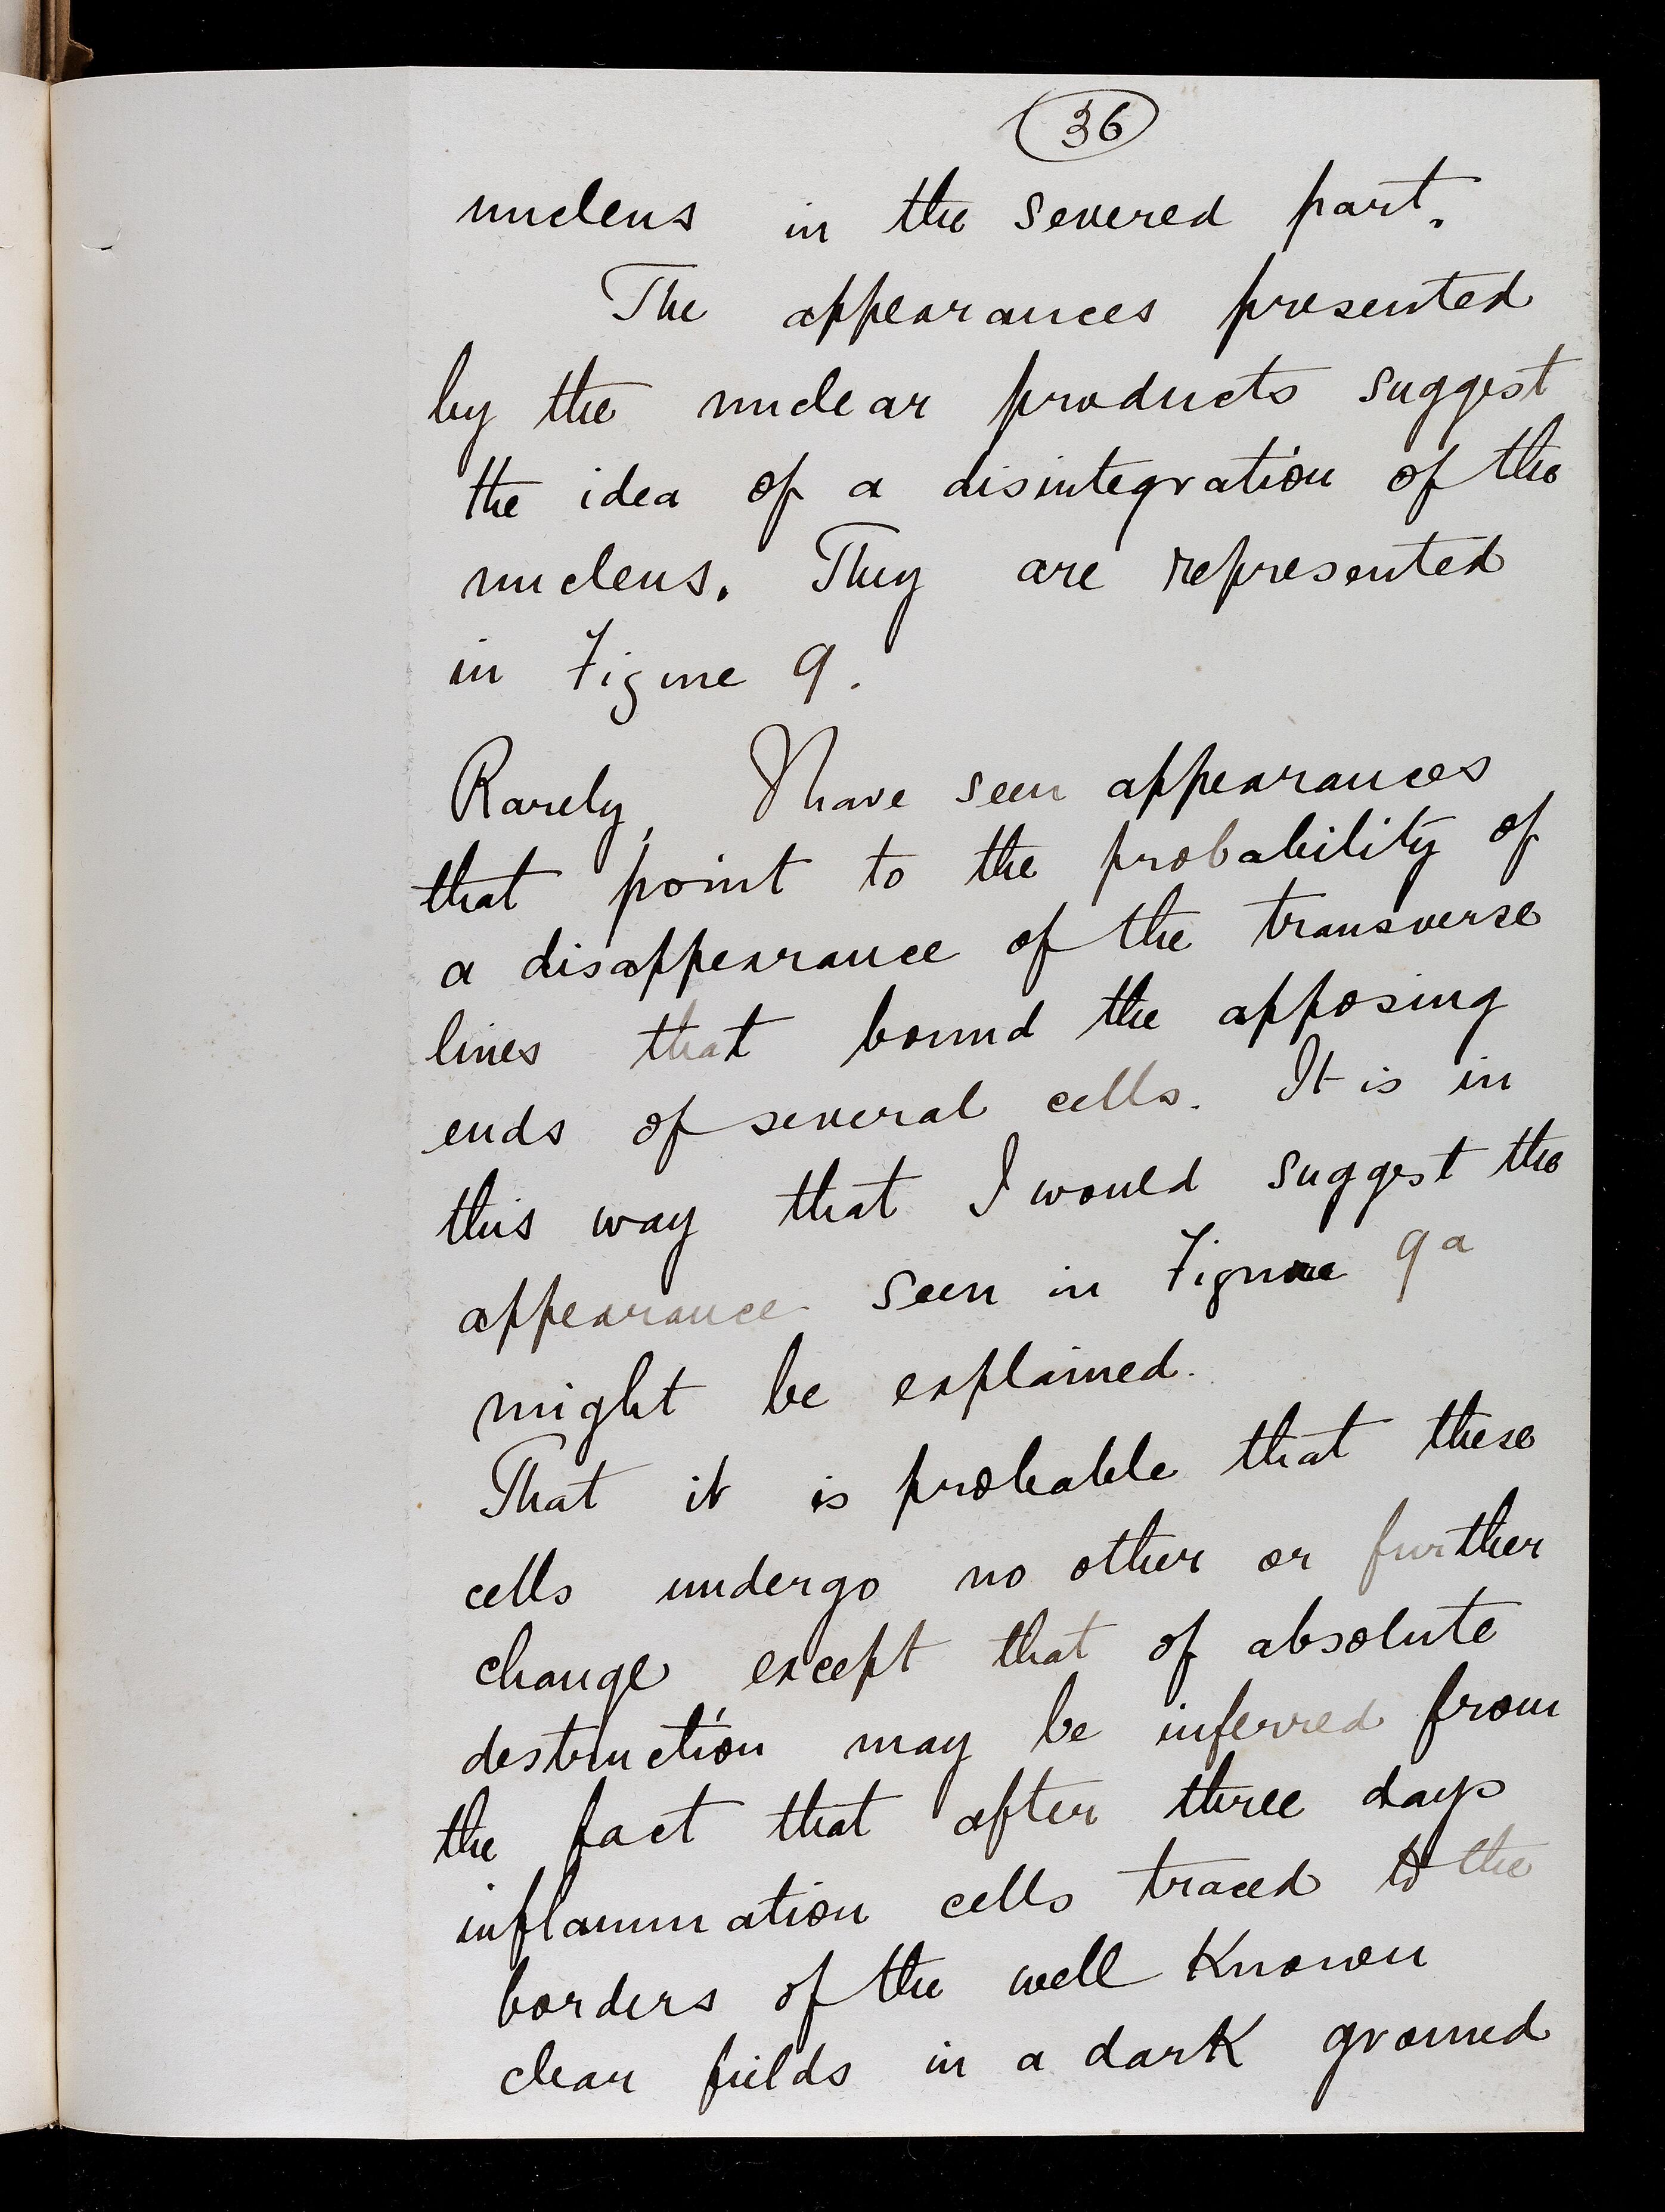 36
nucleus in the severed part.
The appearances presented
by the nuclear products suggest
the idea of a disintegration of the
nucleus. They are represented
in Figure 9.
Rarely, I have seen appearances
that point to the probability of
a disappearance of the transverse
lines that bound the apposing
ends of several cells. It is in
this way that I would suggest the
appearance seen in Figure 9a
might be explained.
That it is probable that these
cells undergo no other or further
change except that of absolute
destruction may be inferred from
the fact that after three days
inflammation cells traced to the
borders of the well Known
clear fields in a dark ground